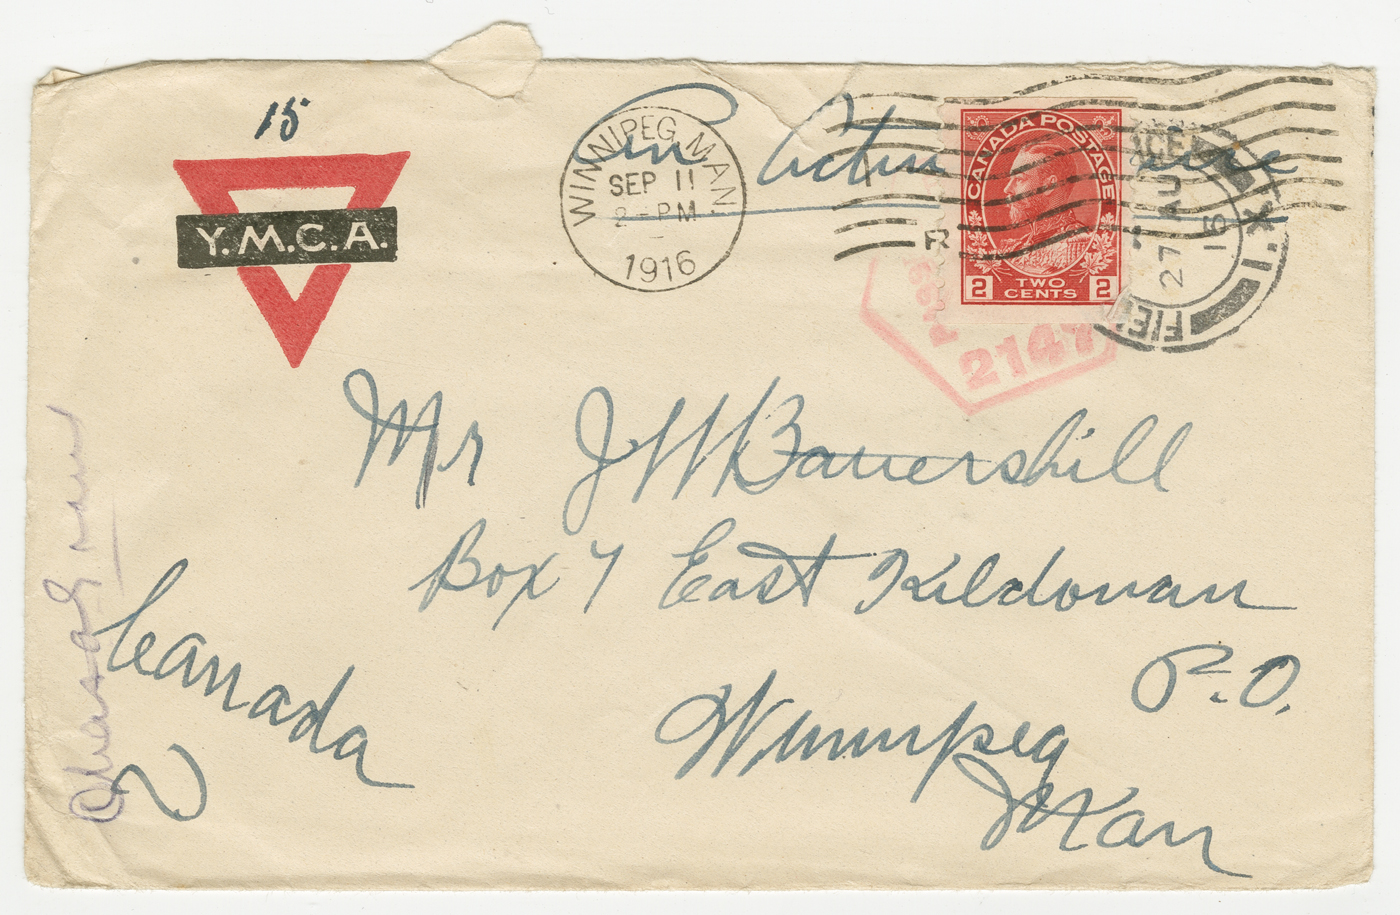 15
Y.M.C.A.
WINNIPEG, MAN.
SEP 11
2 - PM
1916
On Active
CANADA POSTAGE
2 TWO CENTS 2
FIE
X.1
27 AU
16
2147
Mr J W Bauershill
Box 7 East Kildonan
P.O.
Winnipeg
Man
Canada